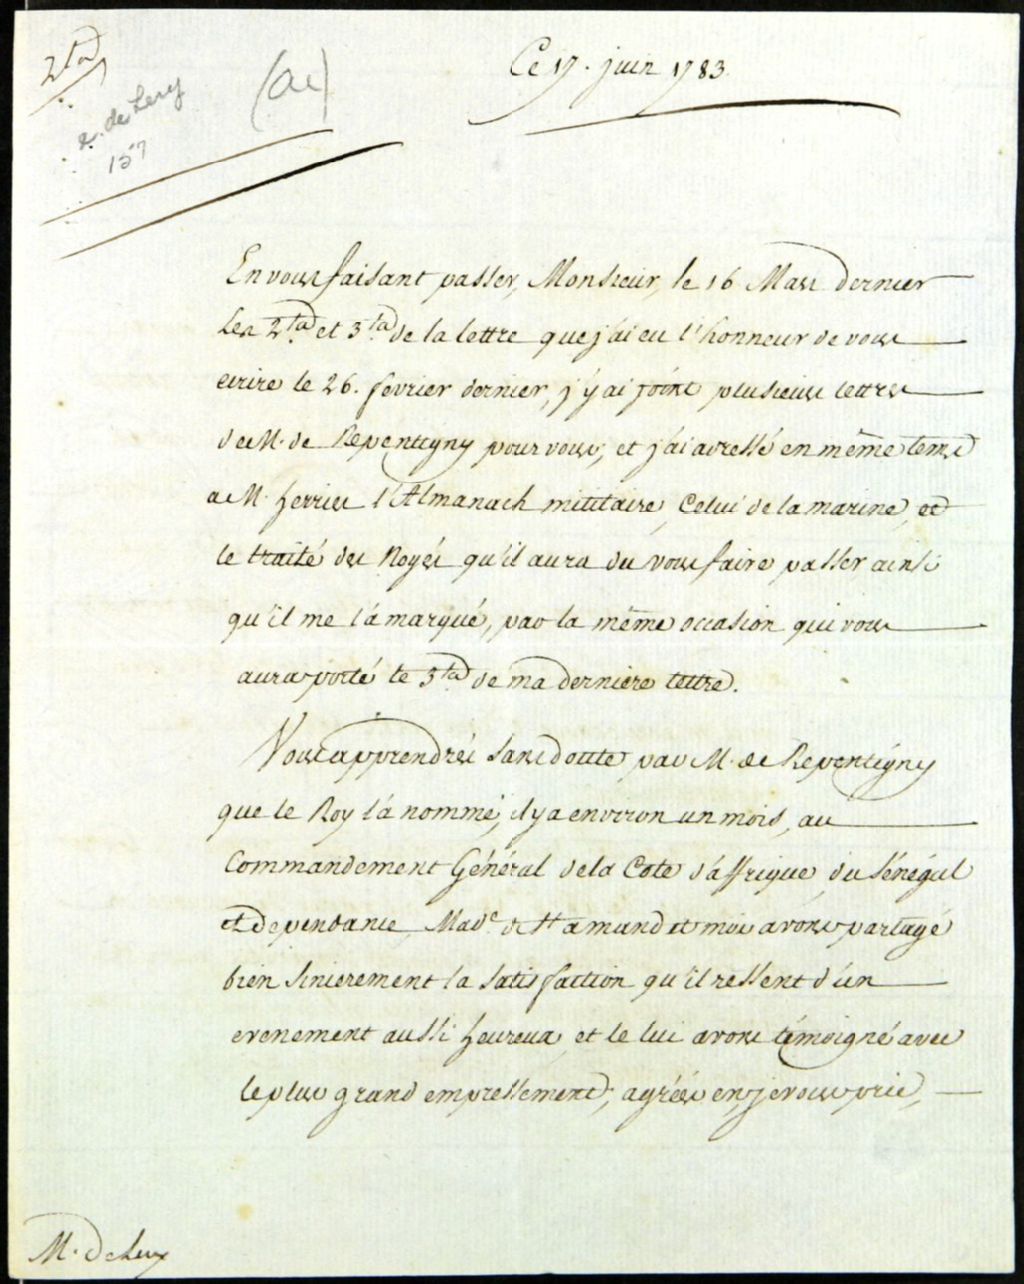 2ta
(ac)
a. de Lery
157
Ce 17. juin 1783
En vous faisant passer, Monsieur, le 16 Mars dernier
Les 2ta. et 3ta. de la lettre que j'ai eu l'honneur de vous
ecrire le 26. fevrier dernier, j'y ai joint plusieurs lettres
de M. de Repentigny pour vous, et j'ai adressé en même tems
a M. ferrier l'Almanach militaire, Celui de la marine, et
le traité des Noyés qu'il aura du vous faire passer ainsi
qu'il me l'a marqué, par la même occasion qui vous
aura porté le 3ta de ma derniere lettre.
Vous apprendrés sans doute par M. de Repentigny
que le Roy l'a nommé, il y a environ un mois, au
Commandement Général de la Cote d'affrique du Sénégal
et dependance, Made. de St amand et moi avons partagé
bien sincerement la satisfaction qu'il ressent d'un
evenement aussi heureux et le lui avons témoigné avec
le plus grand empressement; agréés en, je vous prie,
M. De Lery